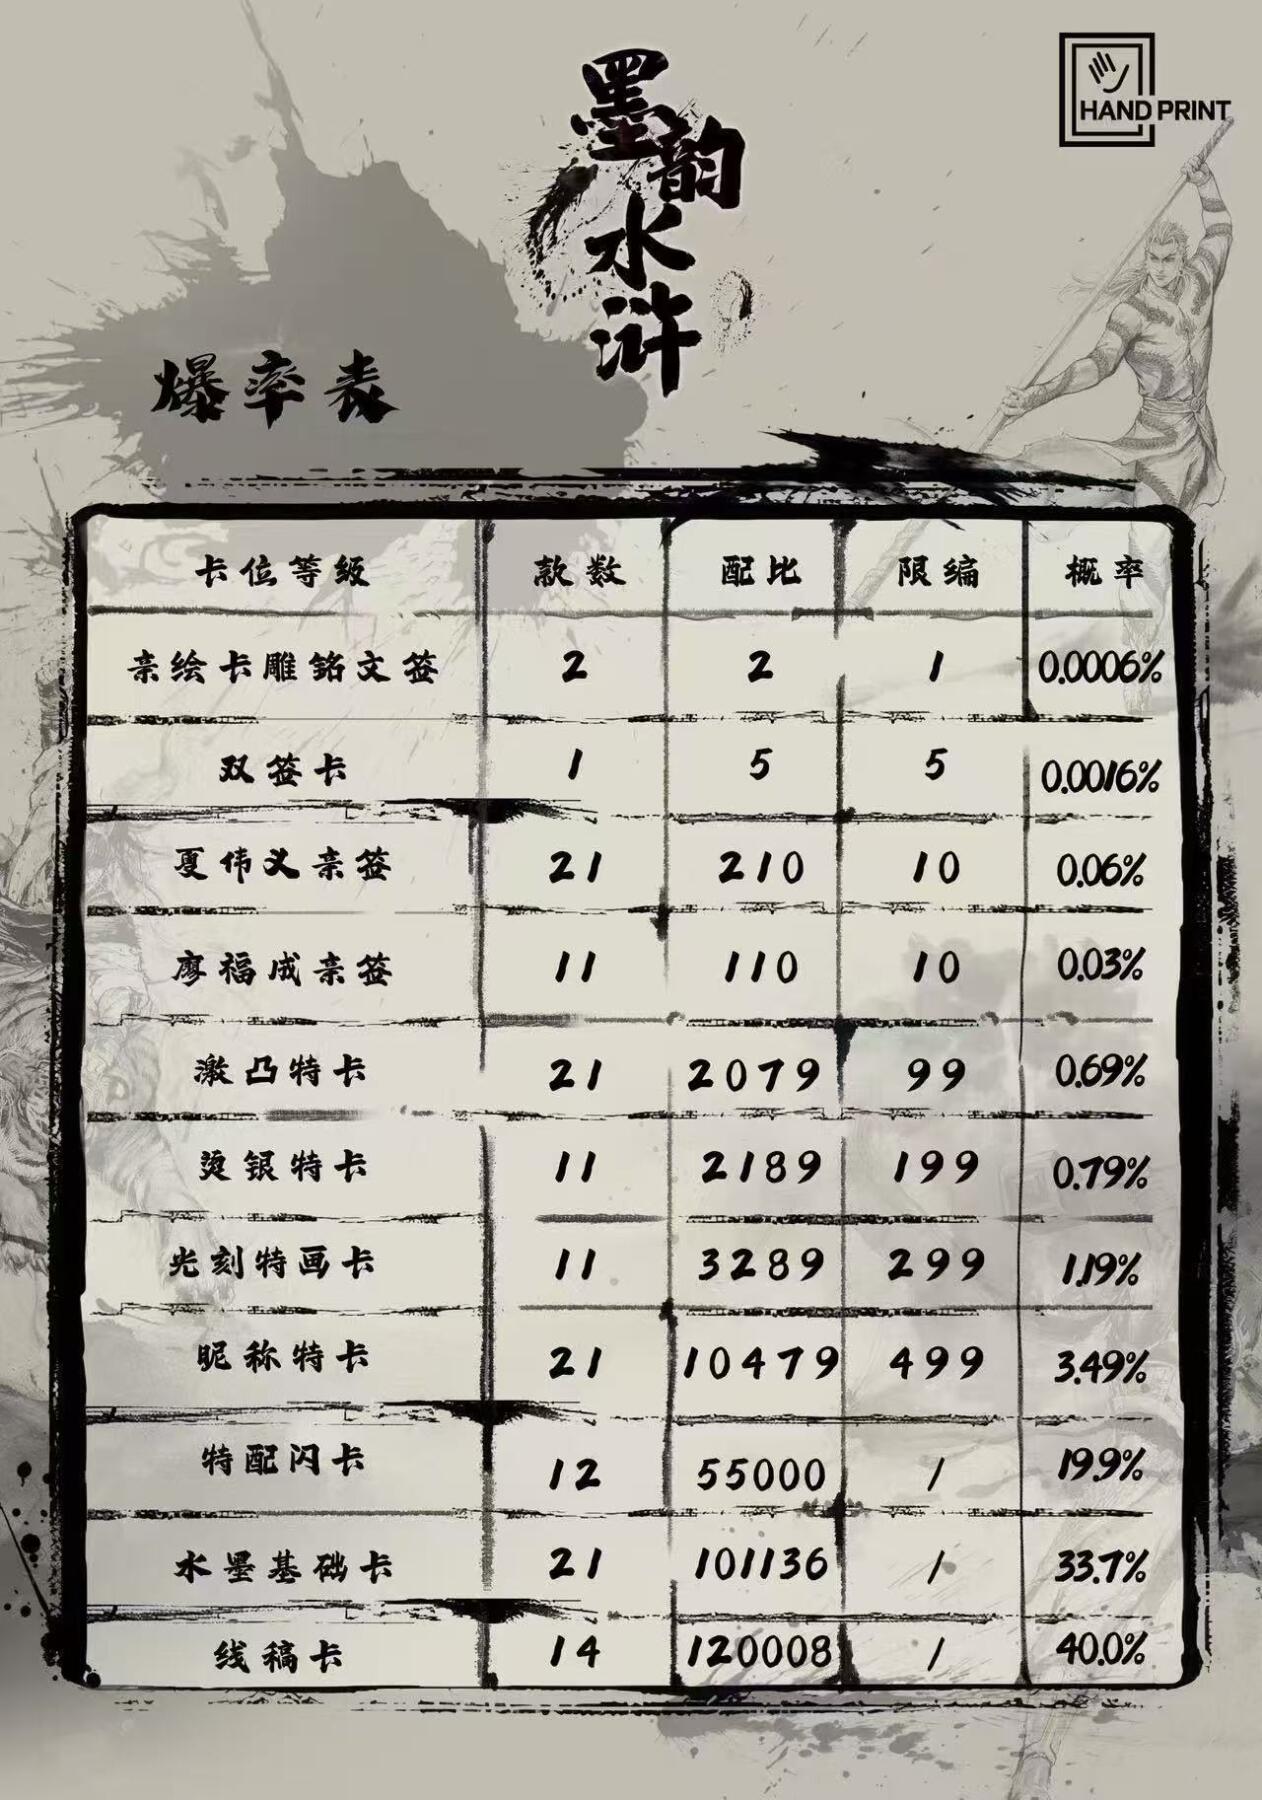 墨韵水浒
HAND PRINT
爆率表
卡位等级 款数 配比 限编 概率
亲绘卡雕铭文签 2 2 1 0.0006%
双签卡 1 5 5 0.0016%
夏伟义亲签 21 210 10 0.06%
廖福成亲签 11 110 10 0.03%
激凸特卡 21 2079 99 0.69%
烫银特卡 11 2189 199 0.79%
光刻特画卡 11 3289 299 1.19%
昵称特卡 21 10479 499 3.49%
特配闪卡 12 55000 / 19.9%
水墨基础卡 21 101136 / 33.7%
线稿卡 14 120008 / 40.0%